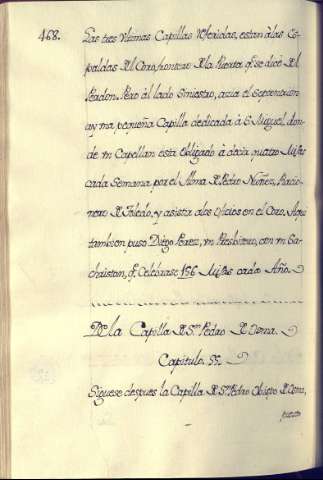 468.
Las tres ultimas Capillas referidas, estan à las Es-
paldas del Coro, frontero de la Puerta q.e se dice del
Perdon. Pero àl lado siniestro, àzia el Septentrion
ay vna pequeña Capilla dedicada à S. Miguel, don-
de vn Capellan està Obligado à decir quatro Misas
cada Semana por el Alma de Pedro Nuñez, Racio-
nero de Toledo, y asistir à los Oficios en el Coro. Aqui
tambien puso Diego Perez, vn Presbitero, con vn Sa-
christan, q.e Celebrase 156 Misas cada Año.
De la Capilla de S.n Pedro de Osma.
Capitulo.
Siguese despues la Capilla de S.n Pedro Obispo de Osma,